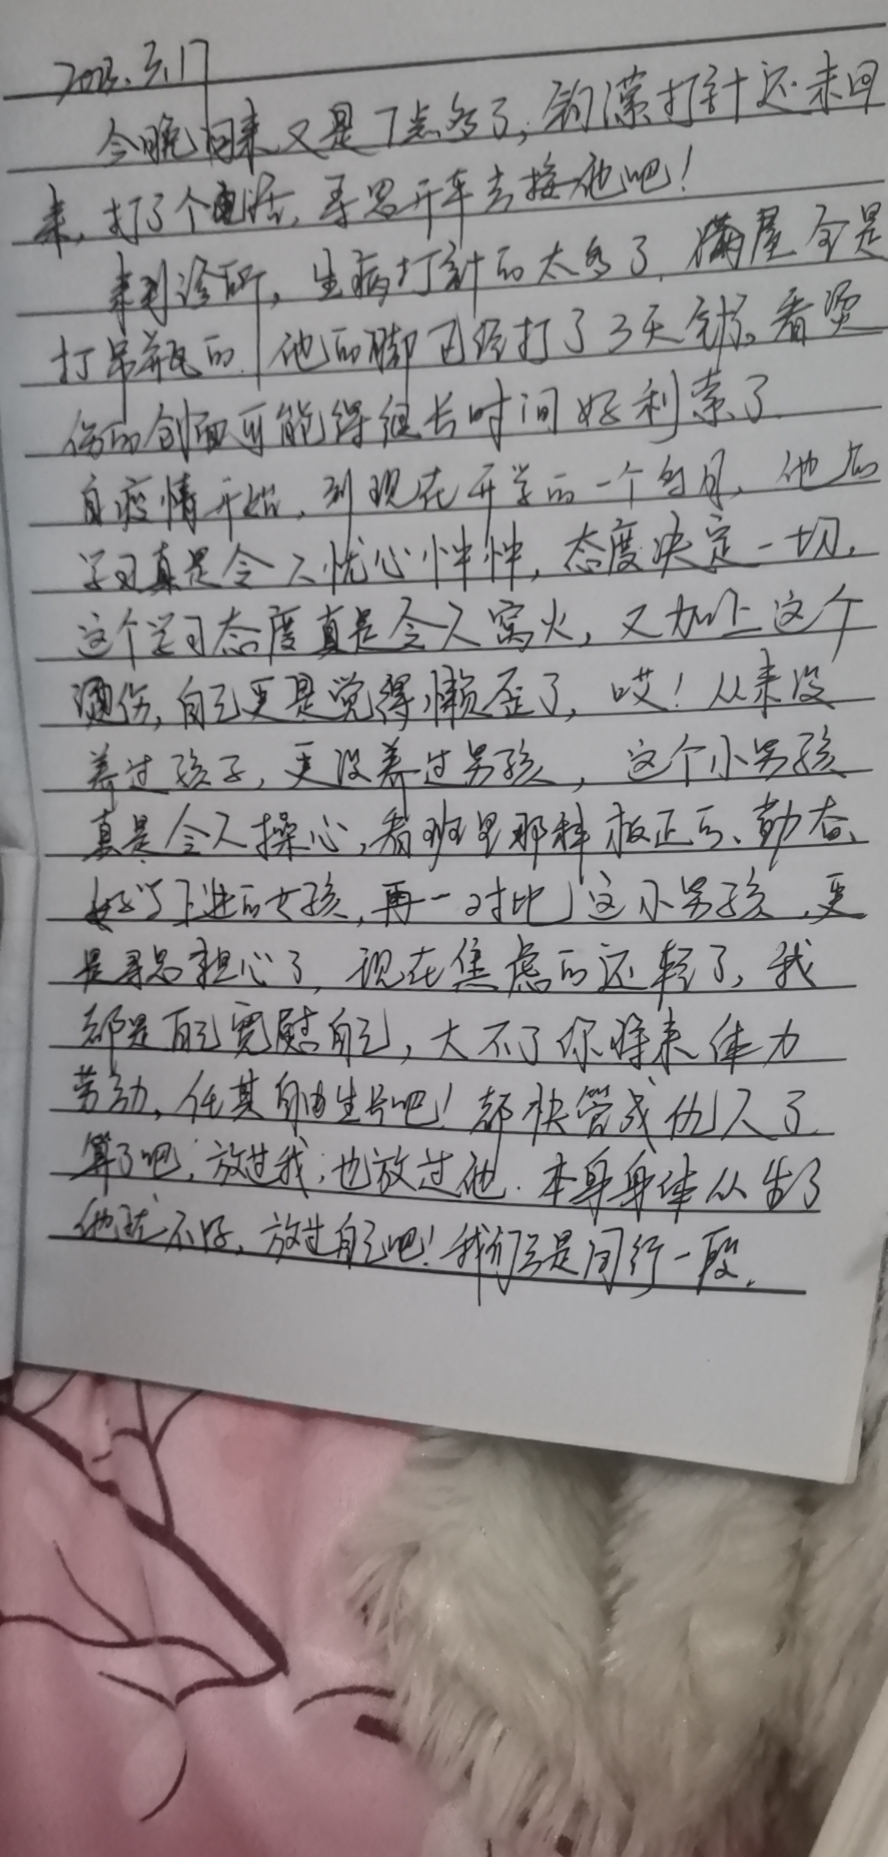 2023.3.17
今晚回来又是7点多了,钧濛打针还未回
来,打了个电话,寻思开车去接他吧!
来到诊所,生病打针的太多了,满屋全是
打吊瓶的,他的脚已经打了3天针,看烫
伤的创面可能得很长时间好利索了
自疫情开始,到现在开学的一个多月,他的
学习真是令人忧心忡忡,态度决定一切,
这个学习态度真是令人窝火,又加上这个
烫伤,自己更是觉得懒歪了,哎!从来没
养过孩子,更没养过男孩,这个小男孩
真是令人操心,看班里那种板正的、勤奋、
好学上进的女孩,再一对比这小男孩,更
是寻思担心了,现在焦虑的还轻了,我
都是自己宽慰自己,大不了你将来体力
劳动,任其自由生长吧!都快管成仇人了
算了吧,放过我,也放过他.本身身体从生了
他就不好,放过自己吧!我们只是同行一段.